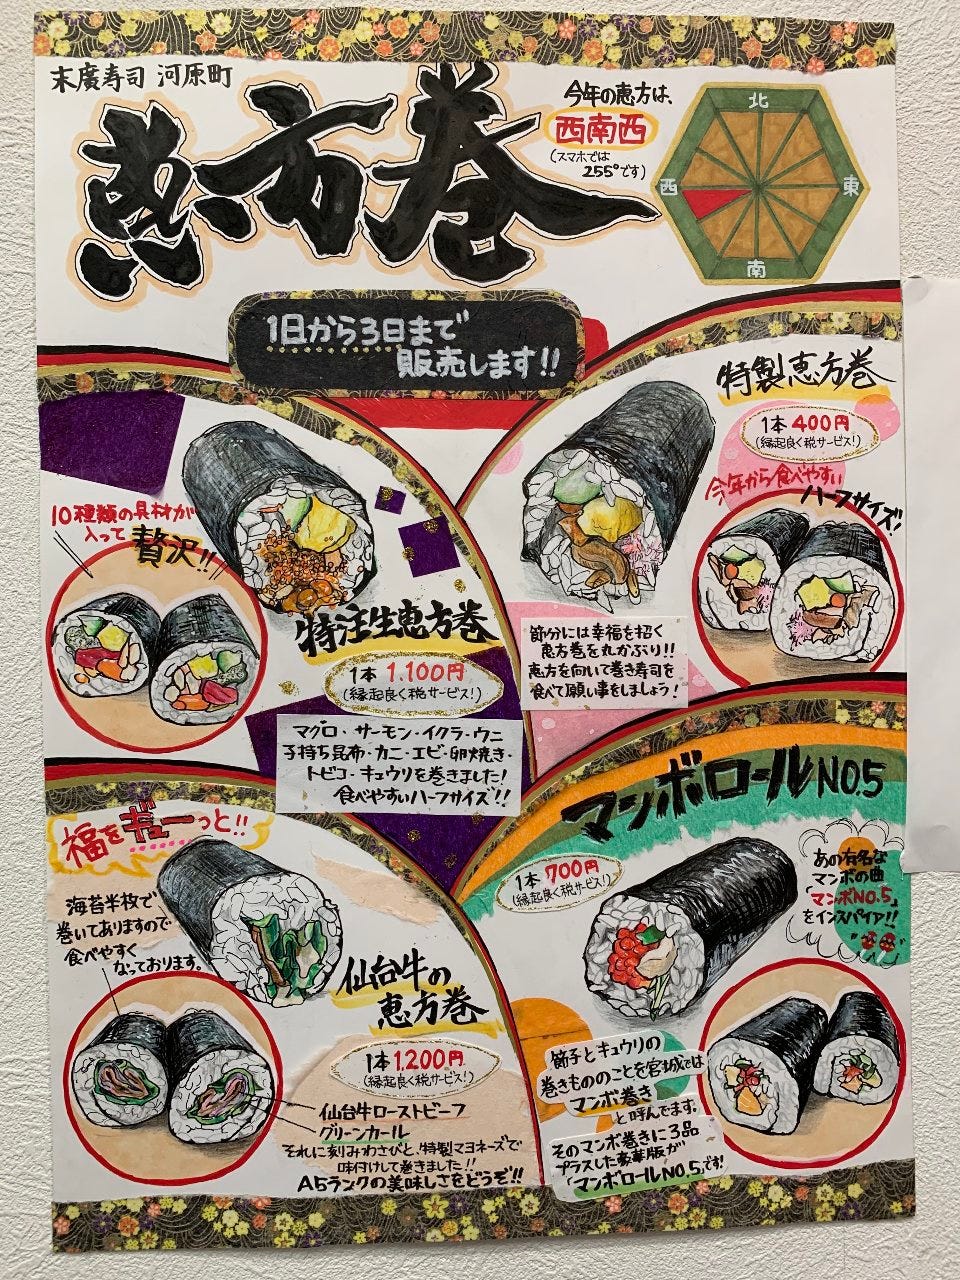 末廣寿司 河原町
恵方巻
今年の恵方は、
西南西
(スマホでは
255°です)
北
西
東
南
1日から3日まで
販売します!!
特製恵方巻
1本 400円
(縁起良く税サービス!)
今年から食べやすい
ハーフサイズ!
節分には幸福を招く
恵方巻を丸かぶり!!
恵方を向いて巻き寿司を
食べて願い事をしましょう!
10種類の具材が
入って 贅沢!!
特注生恵方巻
1本 1.100円
(縁起良く税サービス!)
マグロ・サーモン・イクラ・ウニ
子持ち昆布・カニ・エビ・卵焼き・
トビコ・キュウリを巻きました!
食べやすいハーフサイズ!!
福をギューっと!!
海苔半枚で
巻いてありますので
食べやすく
なっております。
仙台牛の
恵方巻
1本 1.200円
(縁起良く税サービス!)
仙台牛ローストビーフ
グリーンカール
それに刻みわさびと、特製マヨネーズで
味付けして巻きました!!
A5ランクの美味しさをどうぞ!!
マンボロールNO.5
1本 700円
(縁起良く税サービス!)
あの有名な
マンボの曲
「マンボNO.5」
をインスパイア!!
節子とキュウリの
巻きもののことを宮城では
マンボ巻き
と呼んでます。
そのマンボ巻きに3品
プラスした豪華版が
「マンボロールNO.5」です!